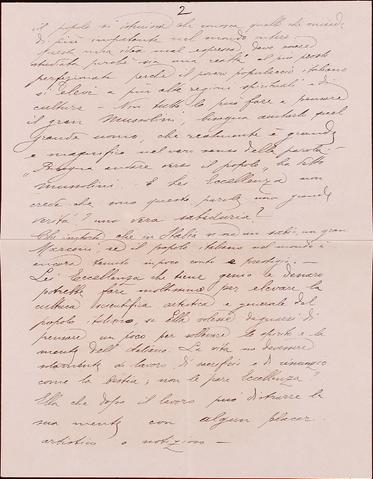 2
il popolo si istruisca che ancora quello che
di più importante nel mondo intero.
questa mia idea mal espressa, deve essere
studiata perché sia una realtà al più presto
perfezionata perché il povero populaccio italiano
si elevi a più alte regioni spirituali e di
cultura - Non tutto lo può fare e pensare
il gran Mussolini, bisogna aiutarlo quel
grande uomo, che realmente è grande
e magnifico nel vero senso della parola. -
"Bisogna andare verso il popolo", ha detto
Mussolini. E Lei Eccellenza non
crede che sono queste parole una grande
verità? una vera sabiduria?
Che importa che in Italia vi sia un gran
Marconi, se il popolo italiano nel mondo è
ancora tenuto in poco conto e prestigio. -
Lei Eccellenza che tiene genio e denaro
potrebbe fare moltissimo per elevare la
cultura scientifica artistica e generale del
popolo italiano, se Ella volesse degnarsi di
pensare un poco per sollevare lo spirito e la
mente dell'italiano. La vita
di lavoro, di sacrifici e di rinuncie
come la bestia; non le pare Eccellenza?
Ella che dopo il lavoro può distrarre la
sua mente con algun placer
artistico o